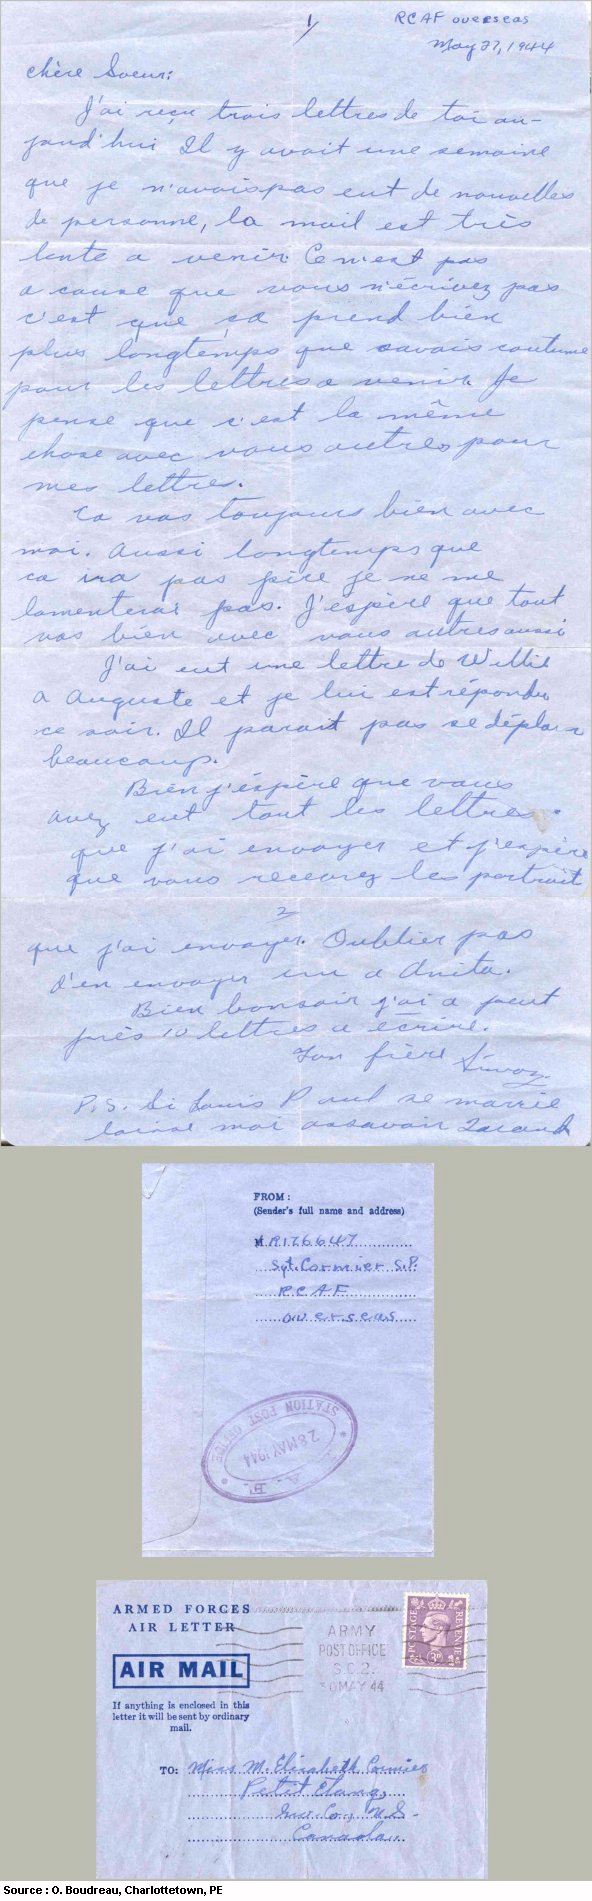 1/
RCAF overseas
May 27, 1944
chère Soeur:
J'ai reçu trois lettres de toi au-
jourd'hui Il y avait une semaine
que je n'avais pas eut de nouvelles
de personne, la mail est très
lente a venir Ce n'est pas
a cause que vous n'écrivez pas
c'est que ça prend bien
plus longtemps que avais coutume
pour les lettres a venir. Je
pense que c'est la même
chose avec vous autres pour
mes lettres.
Ca vas toujours bien avec
moi. Aussi longtemps que
ca ira pas pire je ne me
lamenterai pas. J'espère que tout
vas bien avec vous autres aussi
J'ai eut une lettre de Willie
a Auguste et je lui est répondu
ce soir. Il parait pas se déplaire
beaucoup.
Bien j'espère que vous
avez eut tout les lettres
que j'ai envoyer et j'espère
que vous recevrez les portrait
2
que j'ai envoyer. Oublier pas
d'en envoyer un a Anita.
Bien bonsoir j'ai a peut
près 10 lettres a écrire.
Ton frère
P.S. Si Louis Paul se marrie
laisse moi assavoir
FROM:
(Sender's full name and address)
R176647
Sgt. Cormier S.P.
RCAF
overseas
STATION POST OFFICE
28 MAY 1944
ARMED FORCES
AIR LETTER
AIR MAIL
If anything is enclosed in this
letter it will be sent by ordinary
mail.
ARMY
POST OFFICE
S.C.2.
30 MAY 44
POSTAGE REVENUE
3D
TO: Miss M. Elizabeth Cormier
Petit Etang,
Inv. Co., N.S.
Canada.
Source : O. Boudreau, Charlottetown, PE